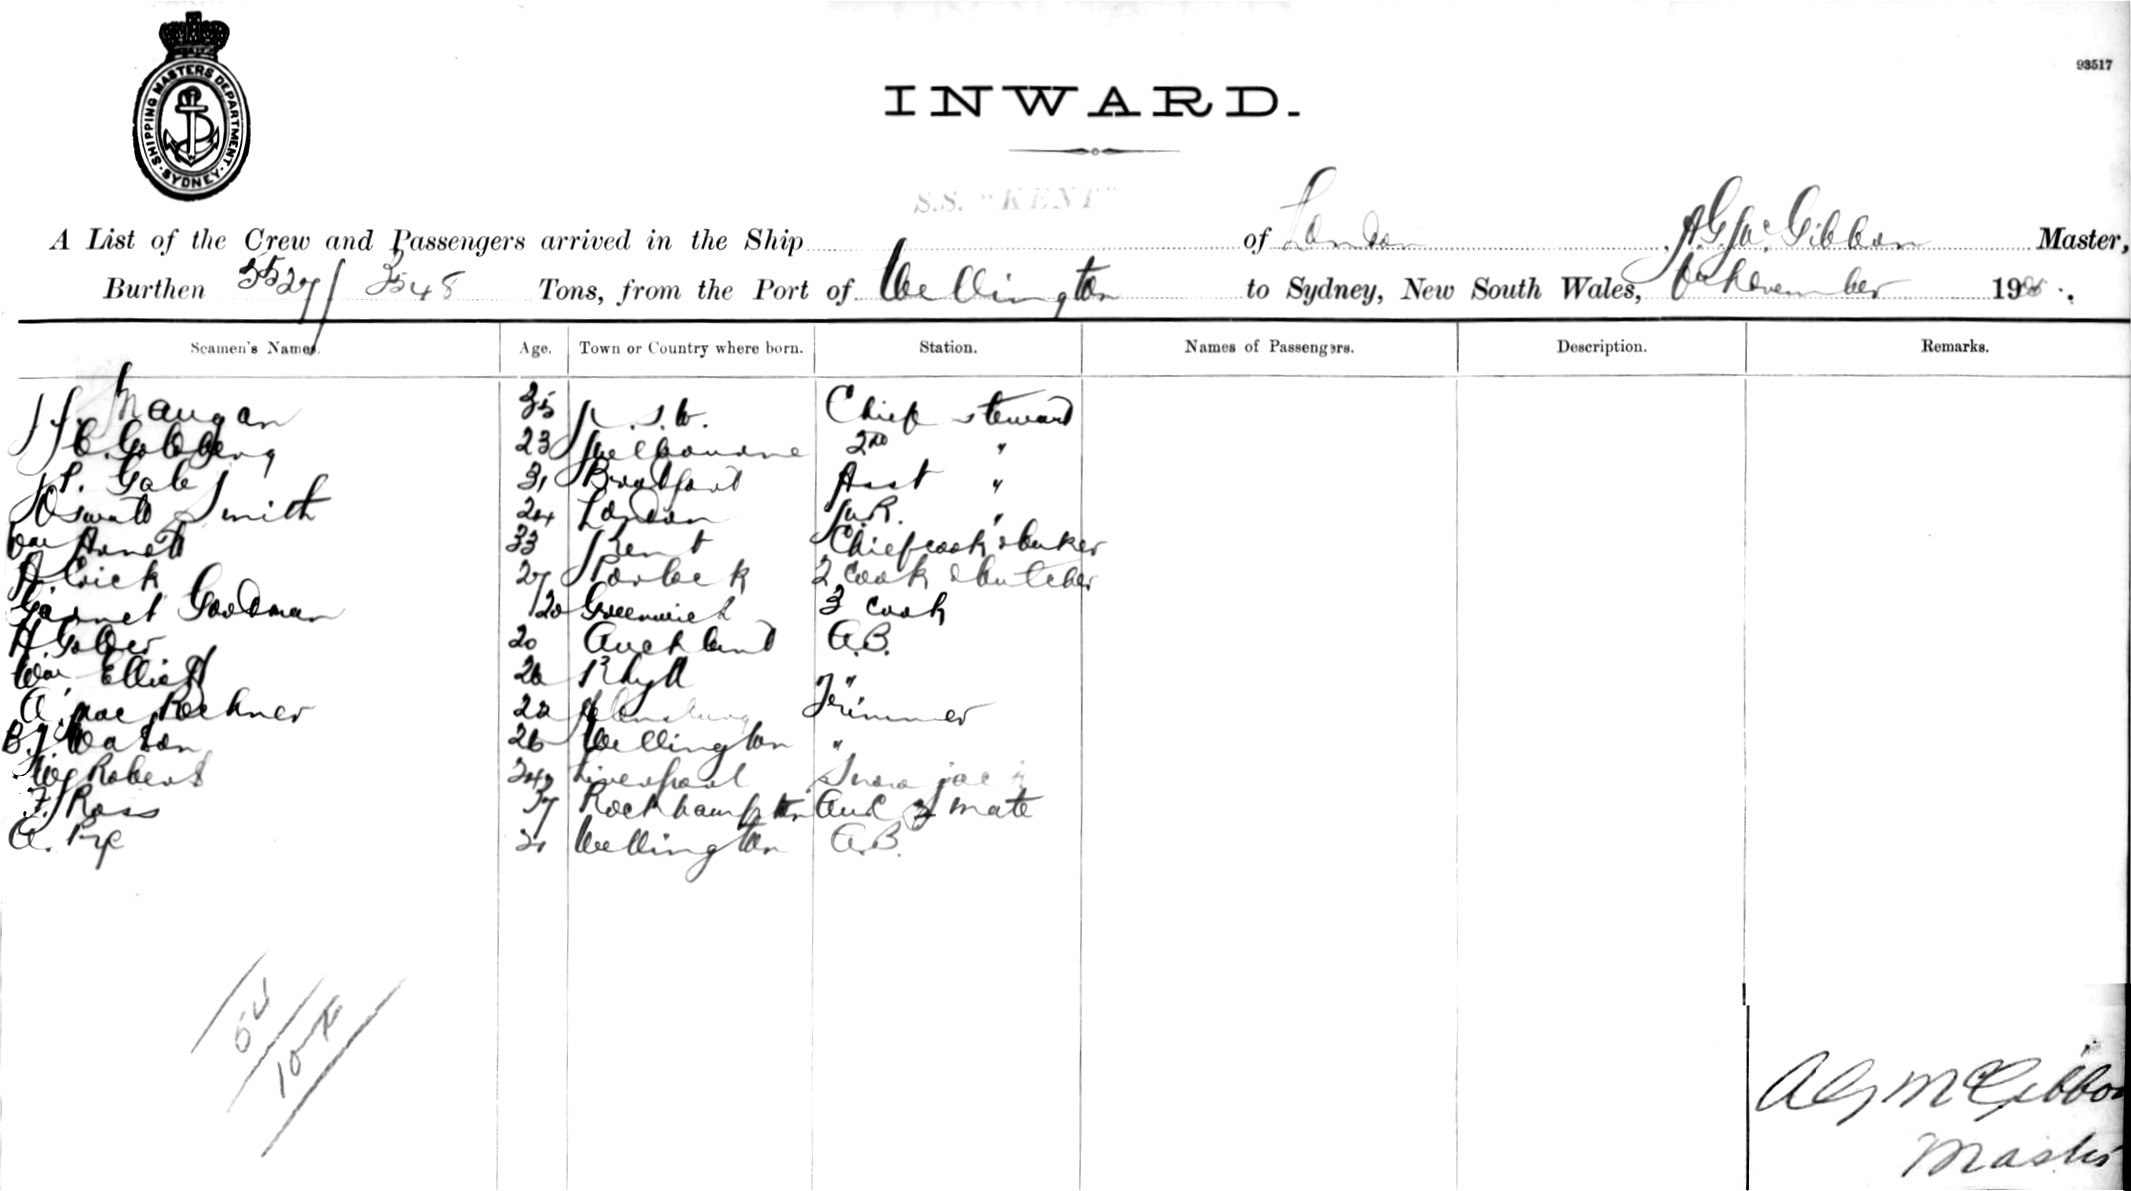 93517
SHIPPING MASTERS DEPARTMENT
SYDNEY
INWARD.
S.S. "KENT"
A List of the Crew and Passengers arrived in the Ship of London, A.G. McGibbon Master,
Burthen 5527/3548 Tons, from the Port of Wellington to Sydney, New South Wales, November 190
Seamen's Names. Age. Town or Country where born. Station. Names of Passengers. Description. Remarks.
Maugan 35 N.S.W. Chief steward
C. Goldberg 23 Melbourne 2nd "
P. Gale 31 Bradford Asst "
Oswald Smith 24 London M.R. "
Wm 33 Kent Chief cook & baker
A Crick 27 Porlock 2 cook & butcher
Garnet Goodman 20 Greenwich 3 cook
H. Golder 20 Auckland A.B.
Wm Elliott Rhyll "
A. 22 Trimmer
Watson 26 Wellington "
Robert Liverpool
F. Ross 37 Rockhampton Aux 3 mate
A. Pye 21 Wellington A.B.
A G McGibbon
Master